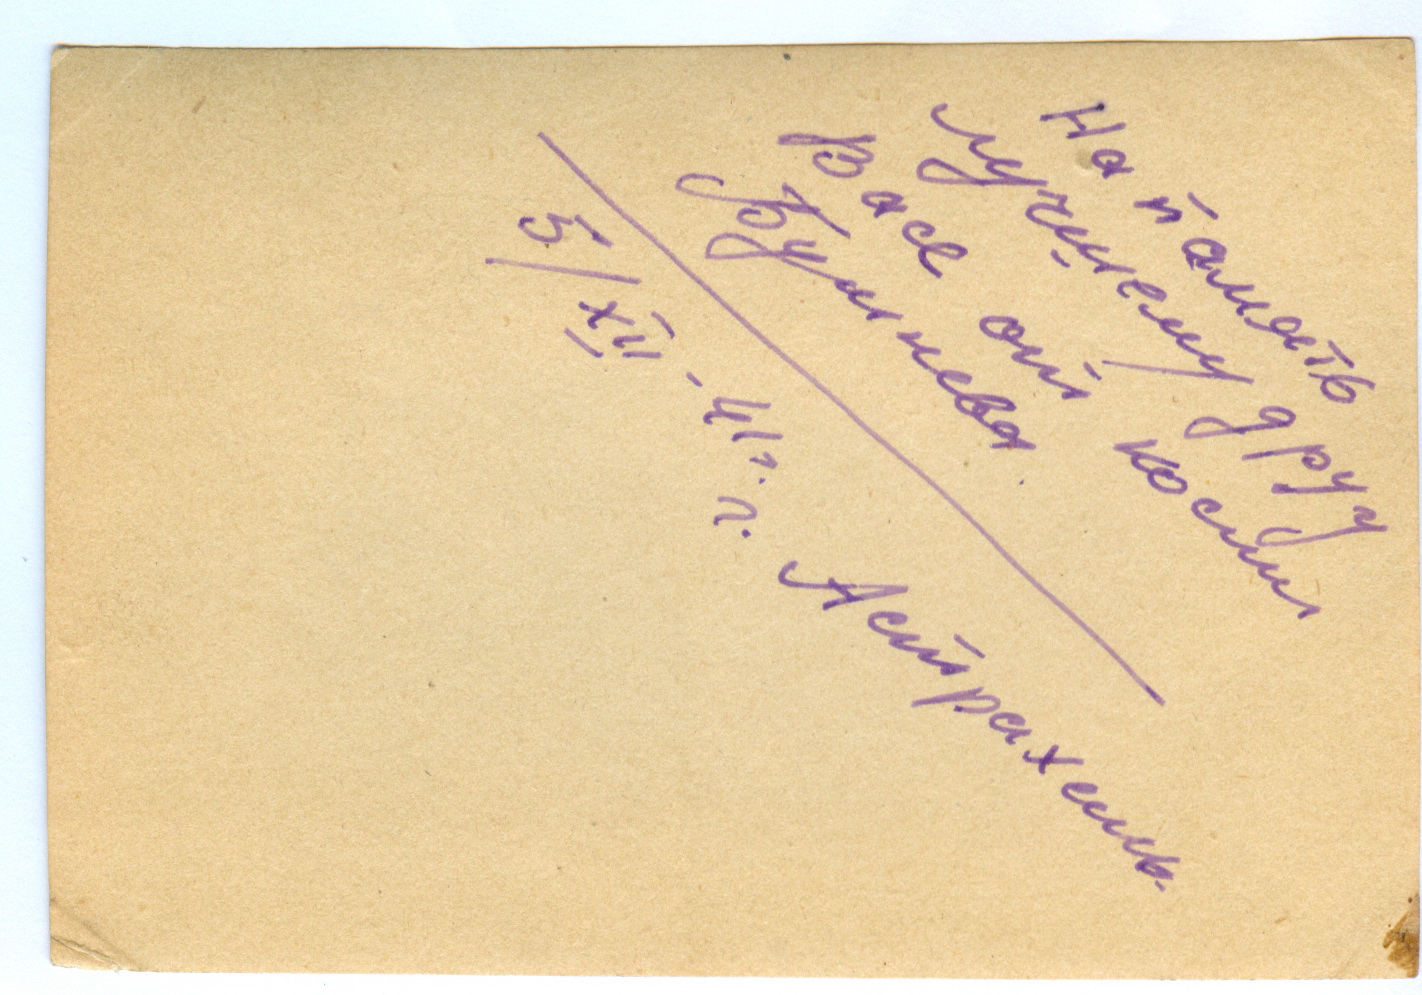 На память
лучшему другу
Васе от Кости
Бунчева.
5/XII - 41 г.
г. Астрахань.